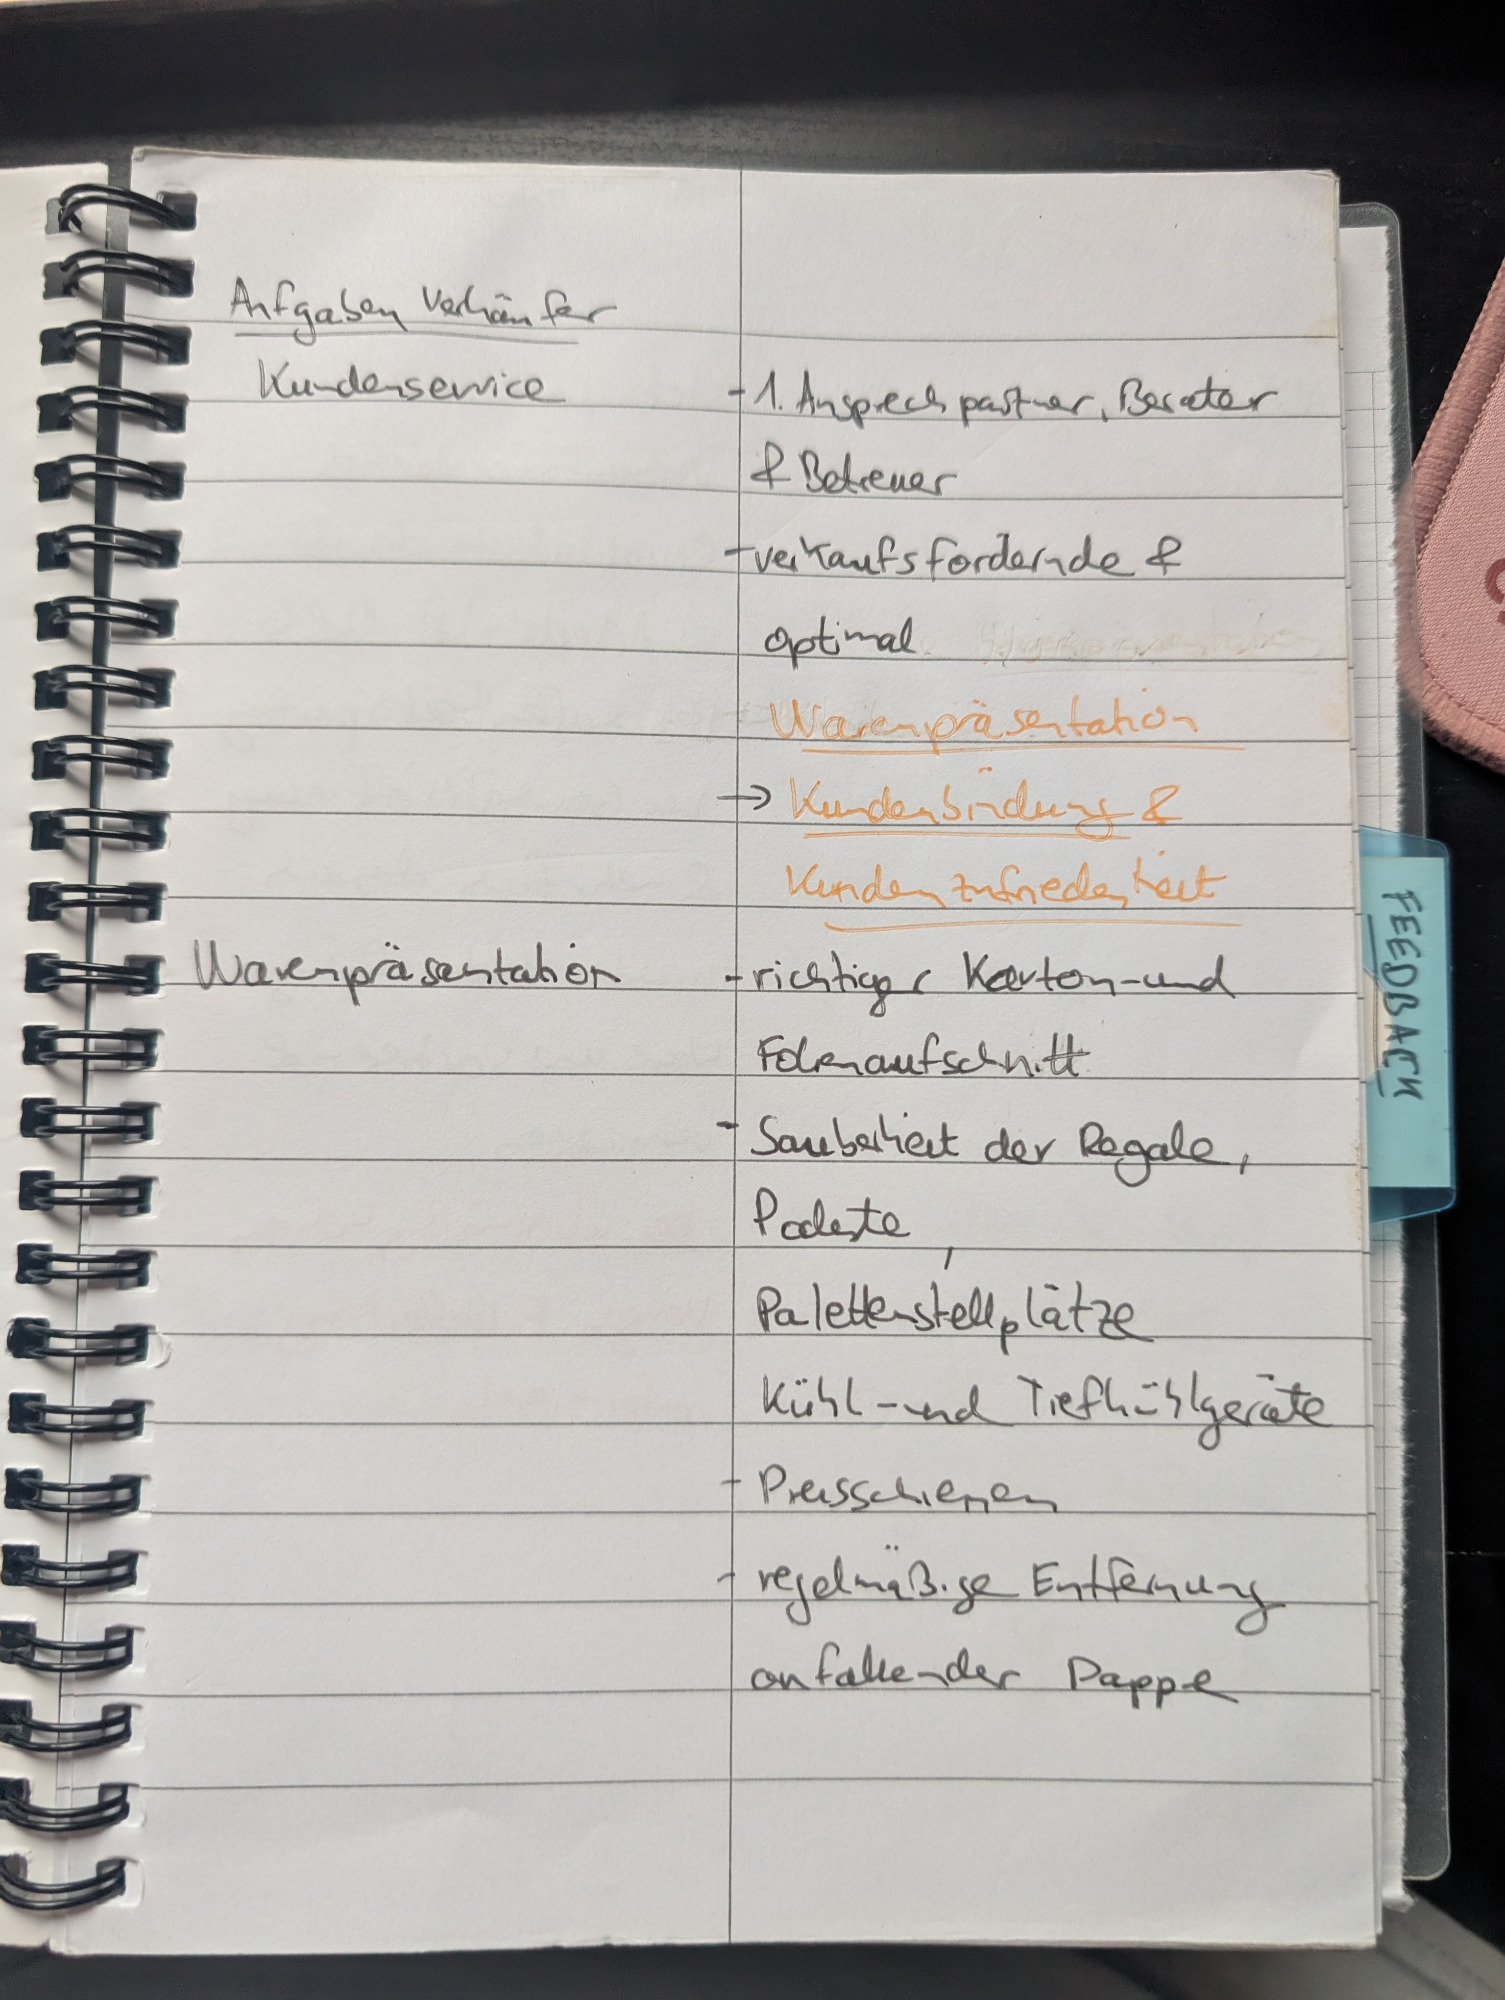 Aufgaben Verkäufer
Kundenservice
- 1. Ansprechpartner, Berater
& Betreuer
- verkaufsfördernde &
optimal
Warenpräsentation
→ Kundenbindung &
Kundenzufriedenheit
Warenpräsentation
- richtiger Karton- und
Folienaufschnitt
- Sauberkeit der Regale,
Podeste,
Palettenstellplätze
Kühl- und Tiefkühlgeräte
- Preisschienen
- regelmäßige Entfernung
anfallender Pappe
FEEDBACK